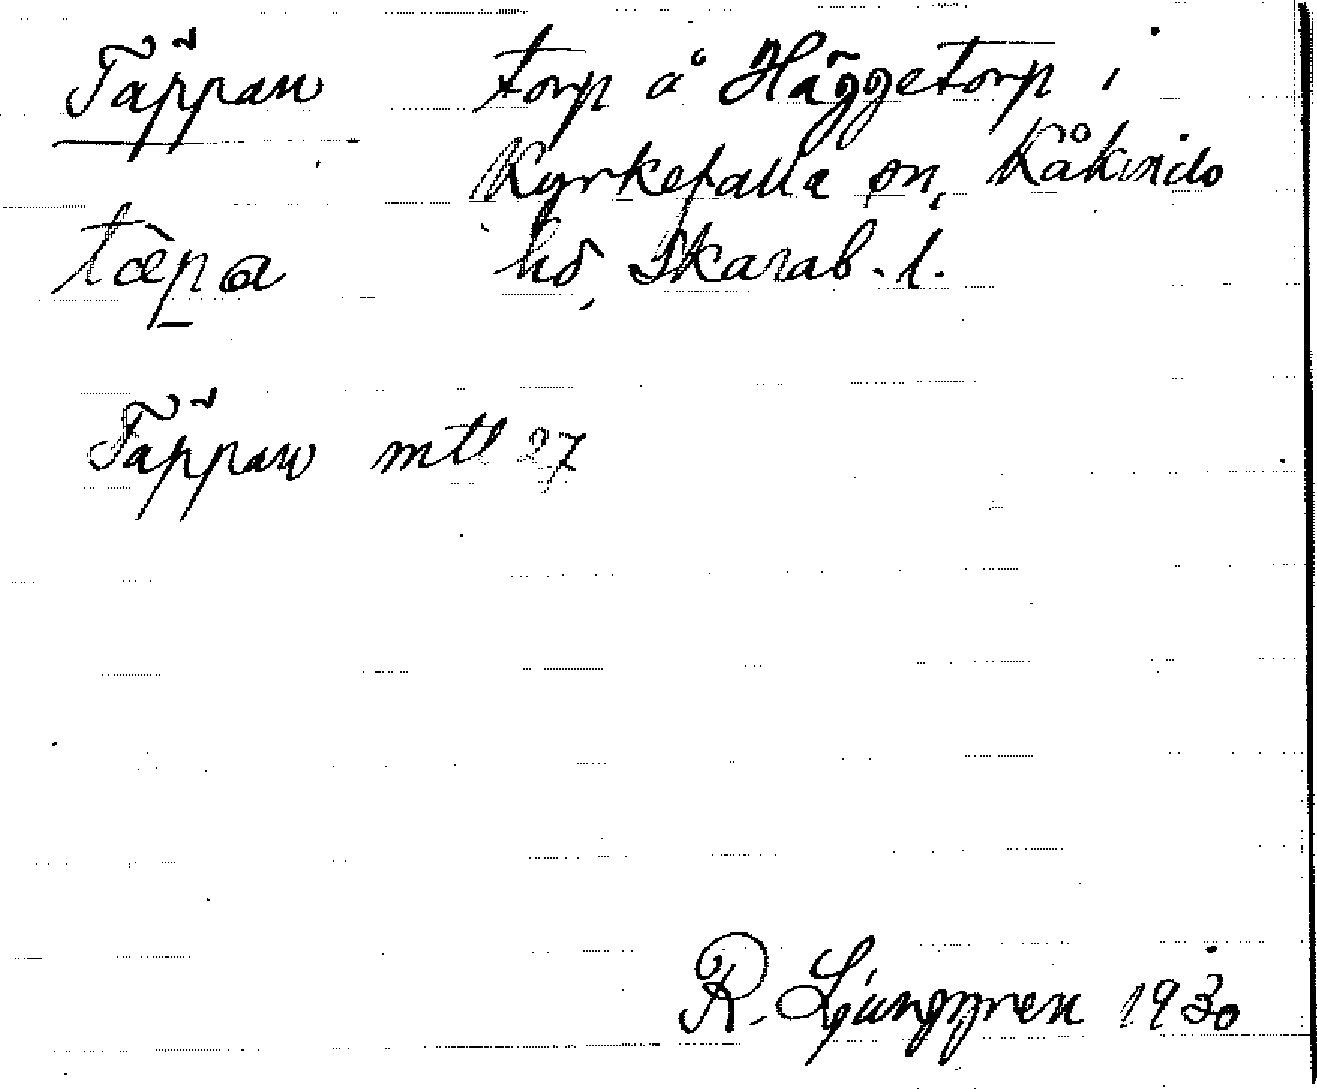 Täppan torp å Häggetorp i
Kyrkefalla sn, Kåkinds
tæ̀pa hd, Skarab. l.
Täppan mtl 27
R. Ljunggren 1930